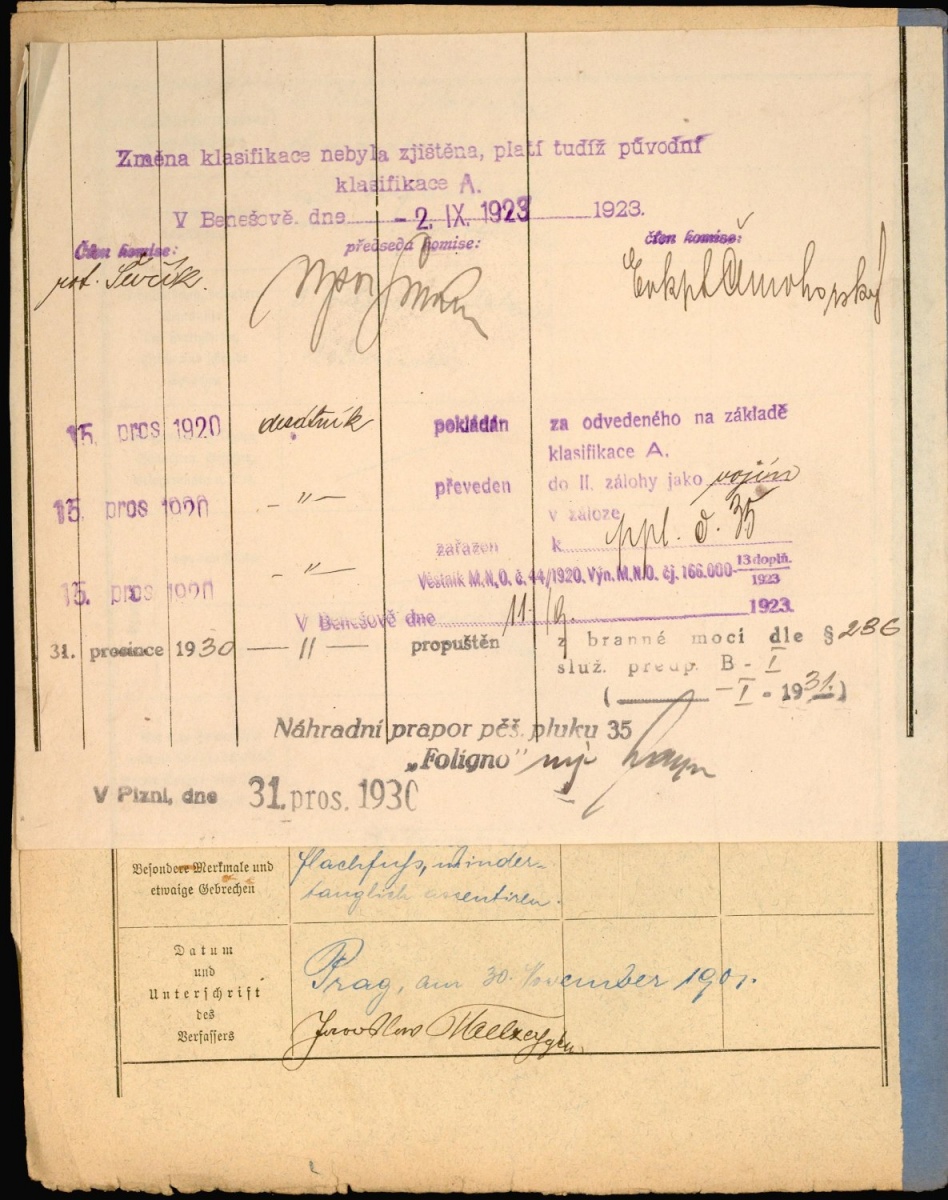 Změna klasifikace nebyla zjištěna, platí tudíž původní
klasifikace A.
V Benešově. dne - 2. IX. 1923 1923.
Člen komise: předseda komise: člen komise:
rot. Ševčík.
15. pros 1920 desátník pokládán za odvedeného na základě
klasifikace A.
15. pros 1920 - " - převeden do II. zálohy jako vojín
v záloze
15. pros 1920 - " - zařazen k ppl. č. 35
Věstník M.N.O. č. 44/1920. Výn. M.N.O. čj. 166.000-13 doplň./1923
V Benešově dne 11. 1923.
31. prosince 1930 — " — propuštěn z branné moci dle § 236
služ. předp. B - I
( — I - 1931. )
Náhradní prapor pěš. pluku 35
„Foligno"
V Plzni, dne 31. pros. 1930
Besondere Merkmale und
etwaige Gebrechen
flachfuss, minder-
tauglich assentiren.
Datum
und
Unterschrift
des
Verfassers
Prag, am 30. November 1901.